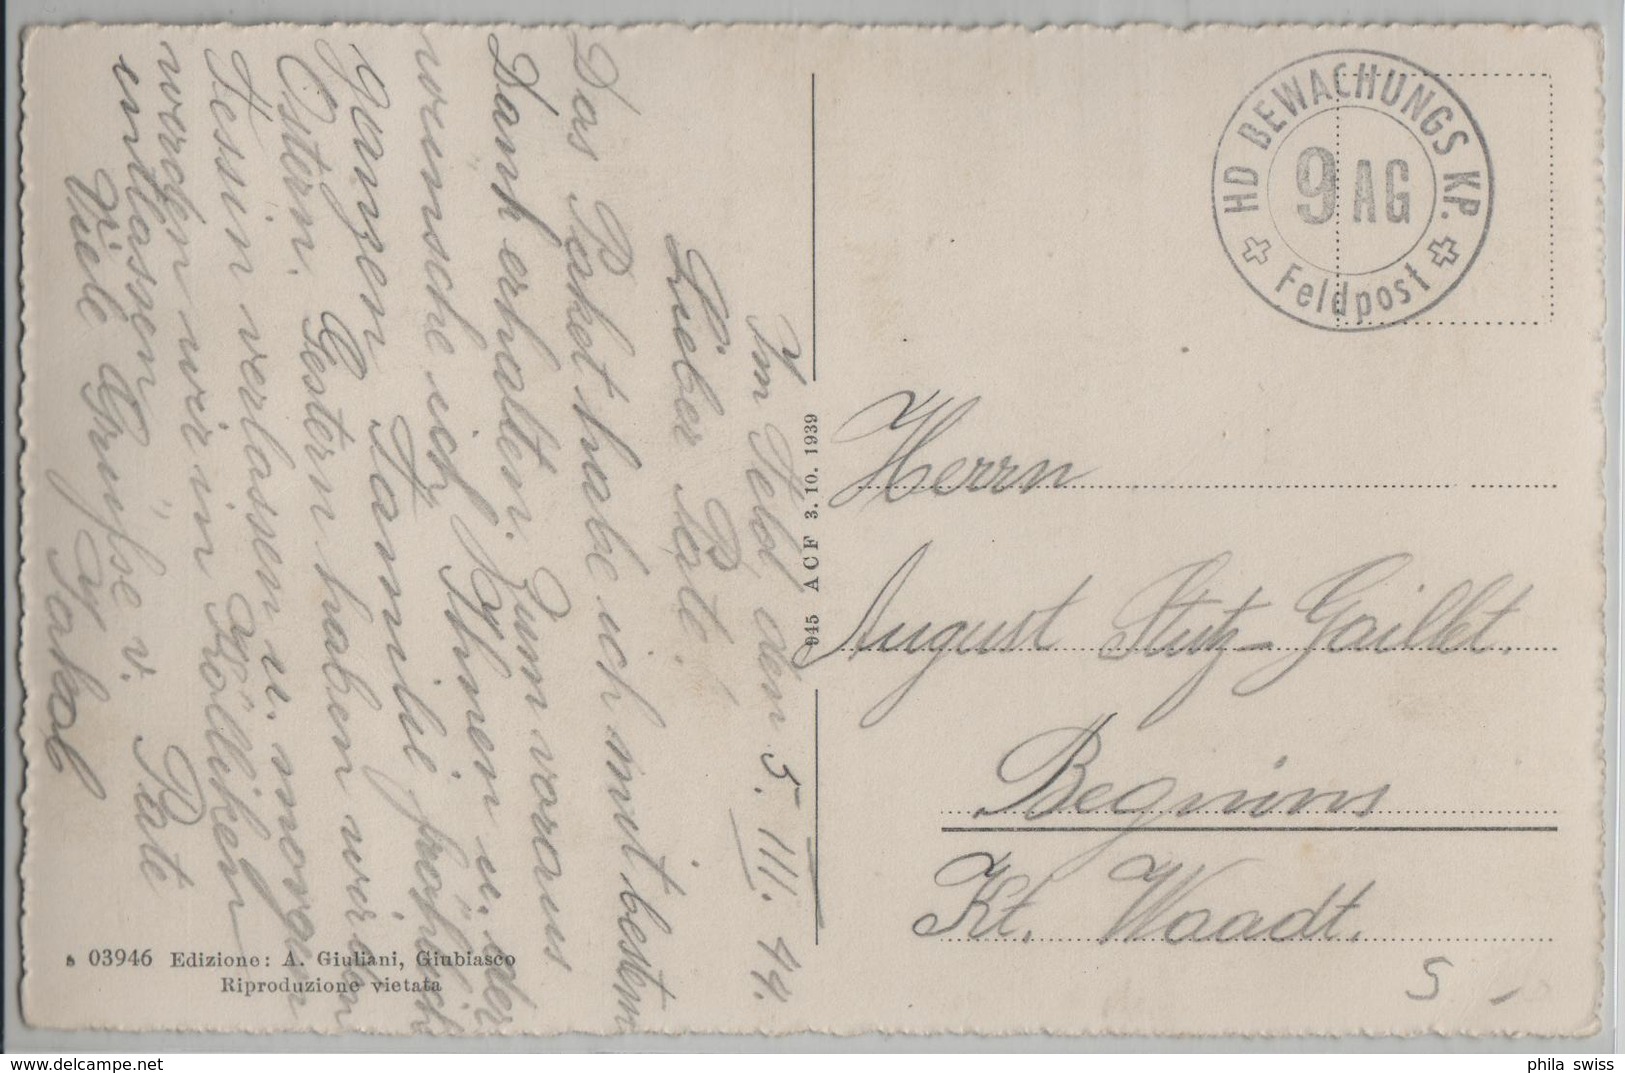 Im Feld, den 5. III. 44.
Lieber Pate!
Das Paket habe ich mit bestem
Dank erhalten. Zum voraus
wünsche ich Ihnen u. der
ganzen Familie fröhlich
Ostern. Gestern haben wir den
Tessin verlassen u. morgen
werden wir in Kölliken
entlassen.
Viele Grüsse v. Pate
Jakob
HD BEWACHUNGS KP.
9 AG
Feldpost
945 ACF 3. 10. 1939
Herrn
August Stutz-Gaillet.
Begnins
Kt. Waadt.
03946 Edizione: A. Giuliani, Giubiasco
Riproduzione vietata
5 -
delcampe.net
phila_swiss